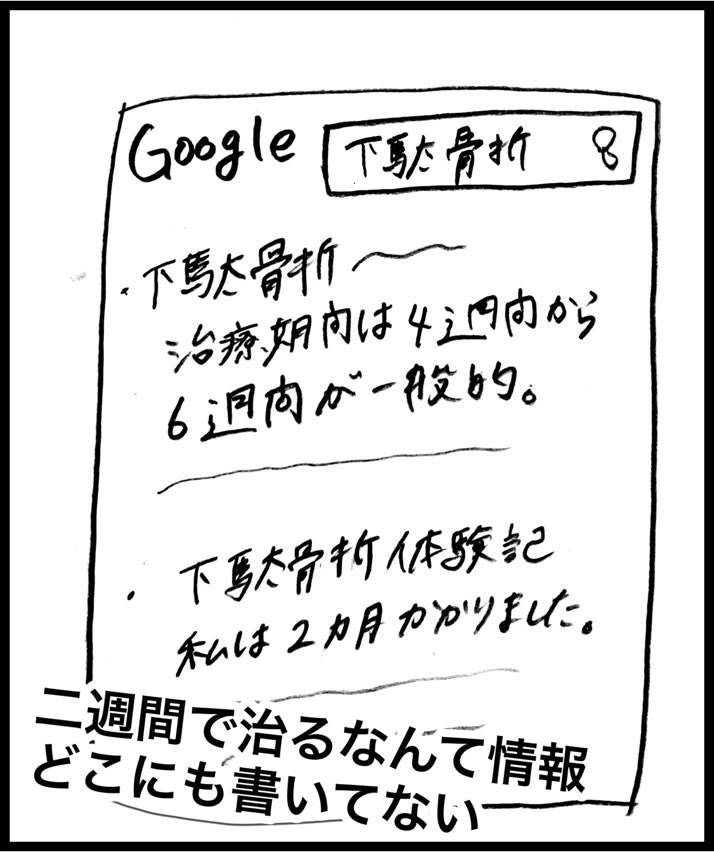 Google
下駄骨折
・下駄骨折
治療期間は4週間から
6週間が一般的。
・下駄骨折体験記
私は2カ月かかりました。
二週間で治るなんて情報
どこにも書いてない